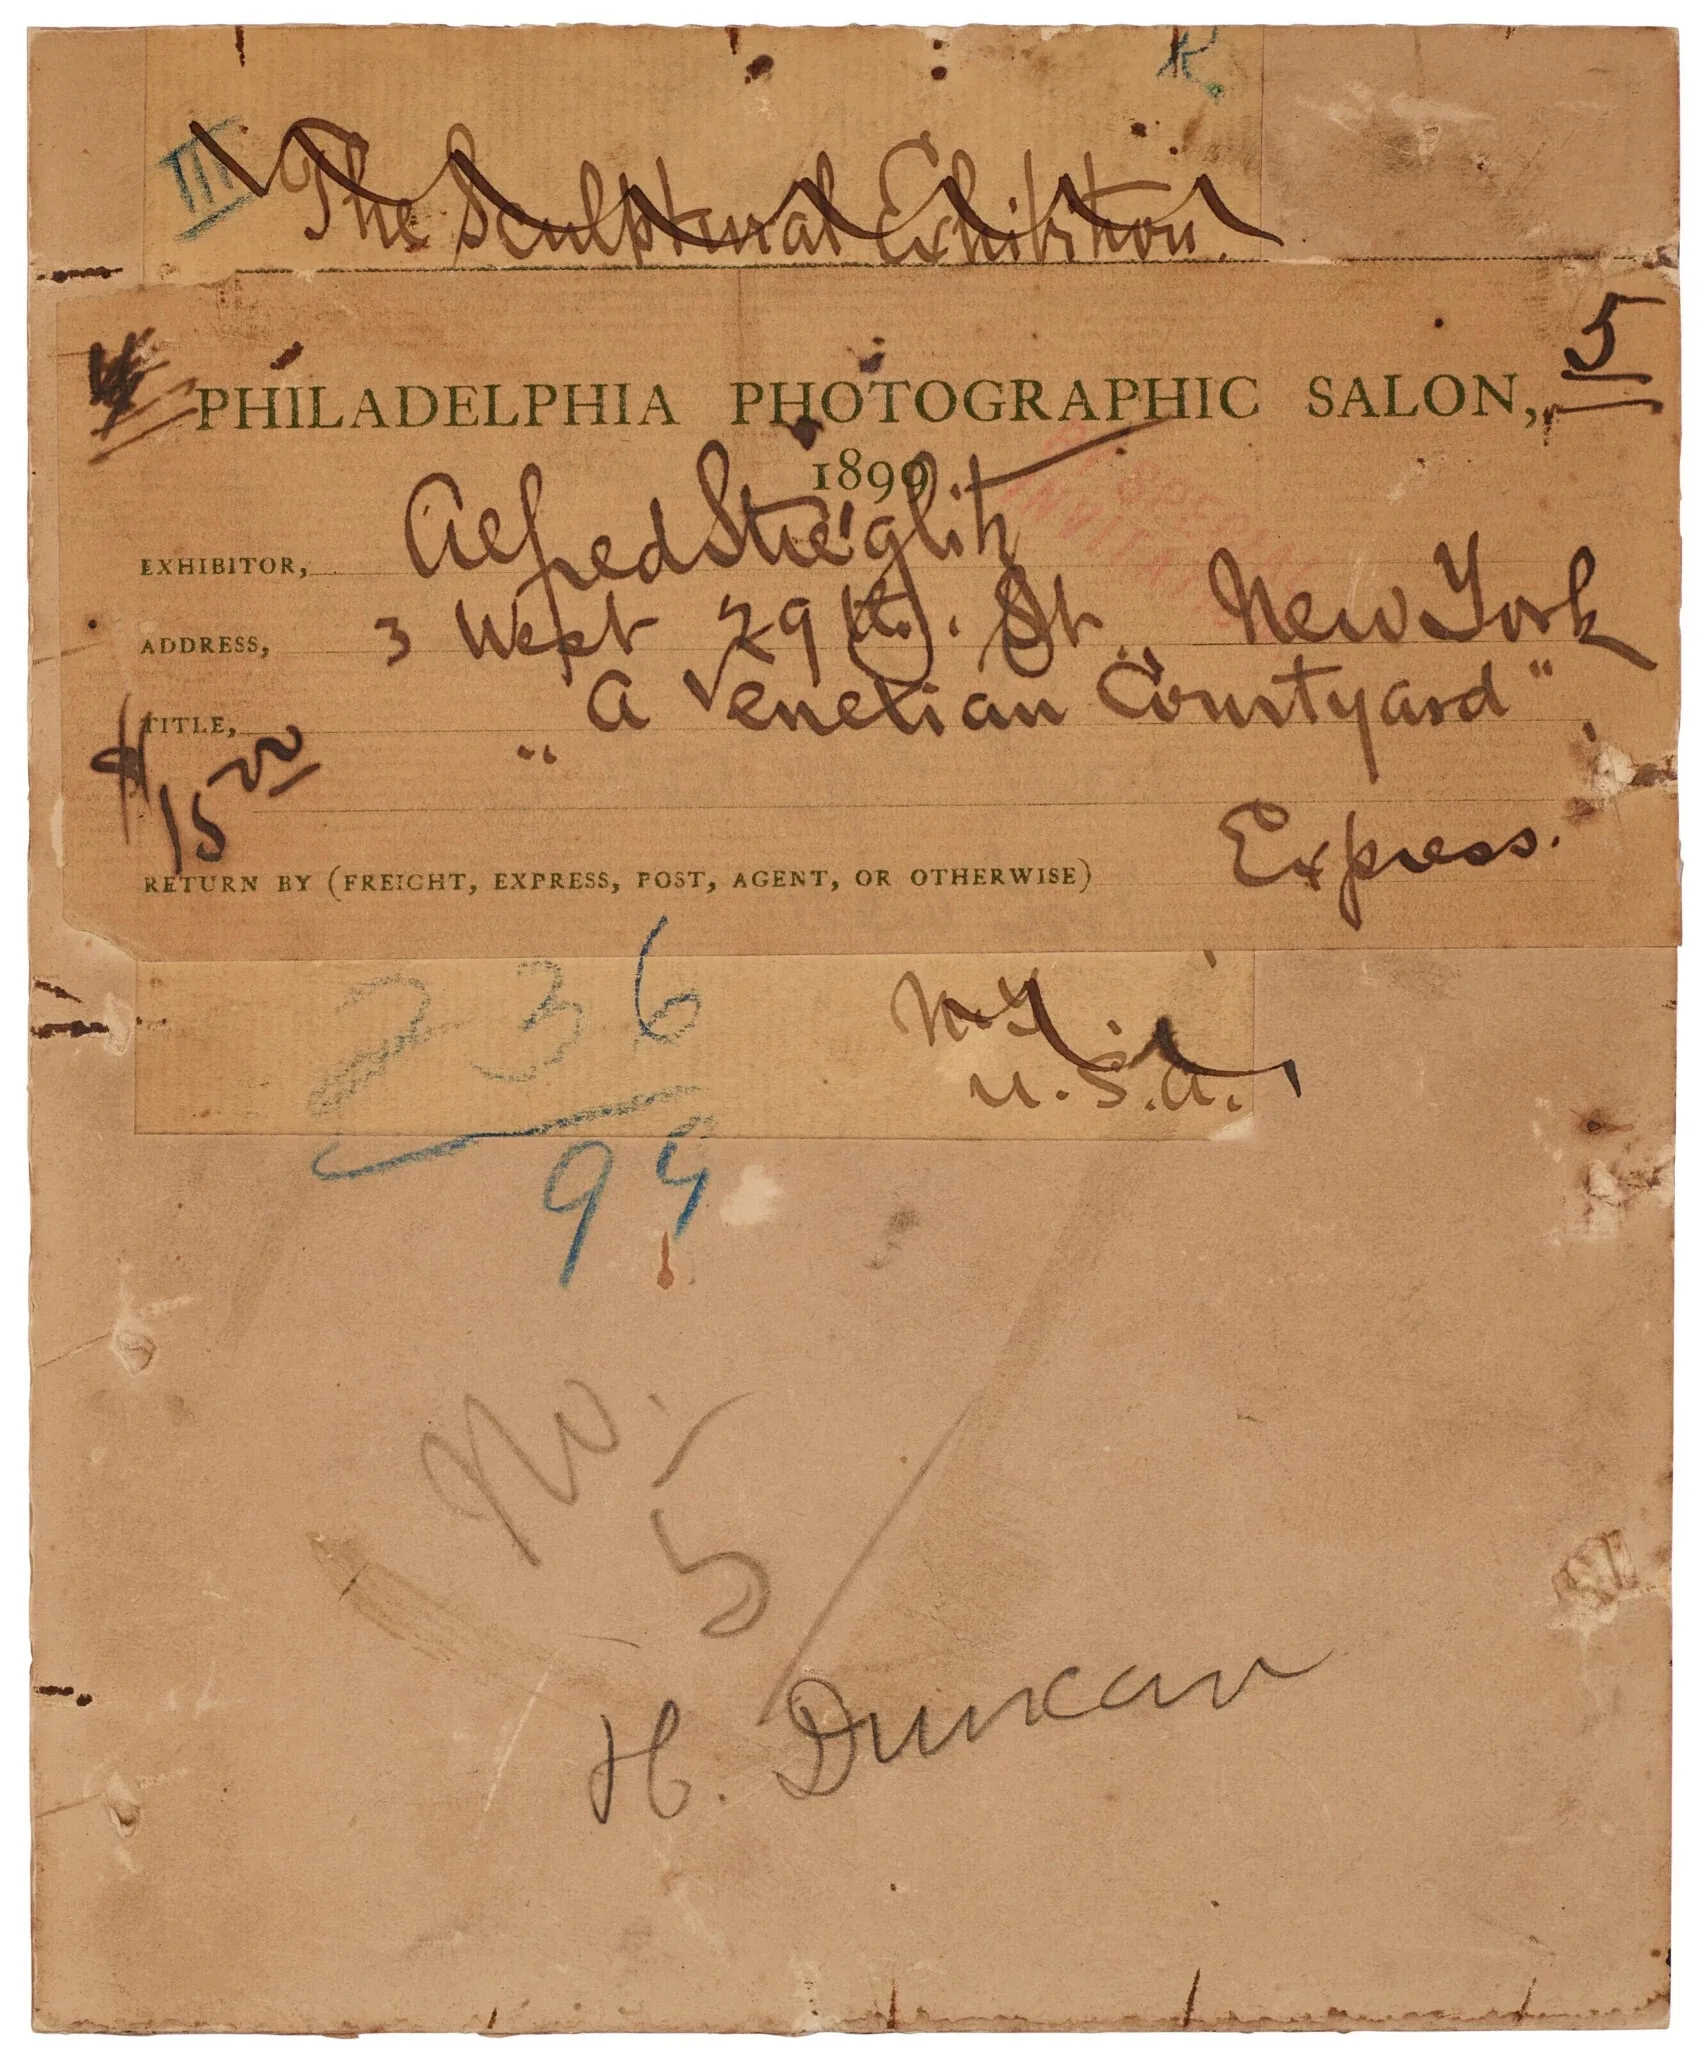 K.
III The Sculptural Exhibition.
4 5
PHILADELPHIA PHOTOGRAPHIC SALON,
1899
BY SPECIAL
INVITATION
EXHIBITOR, Alfred Stieglitz
ADDRESS, 3 West 29th. St. New York
TITLE, "A Venetian Courtyard"
$15.00
RETURN BY (FREIGHT, EXPRESS, POST, AGENT, OR OTHERWISE) Express.
236
99
N.Y.
U.S.A.
No.
5
H. Duncan